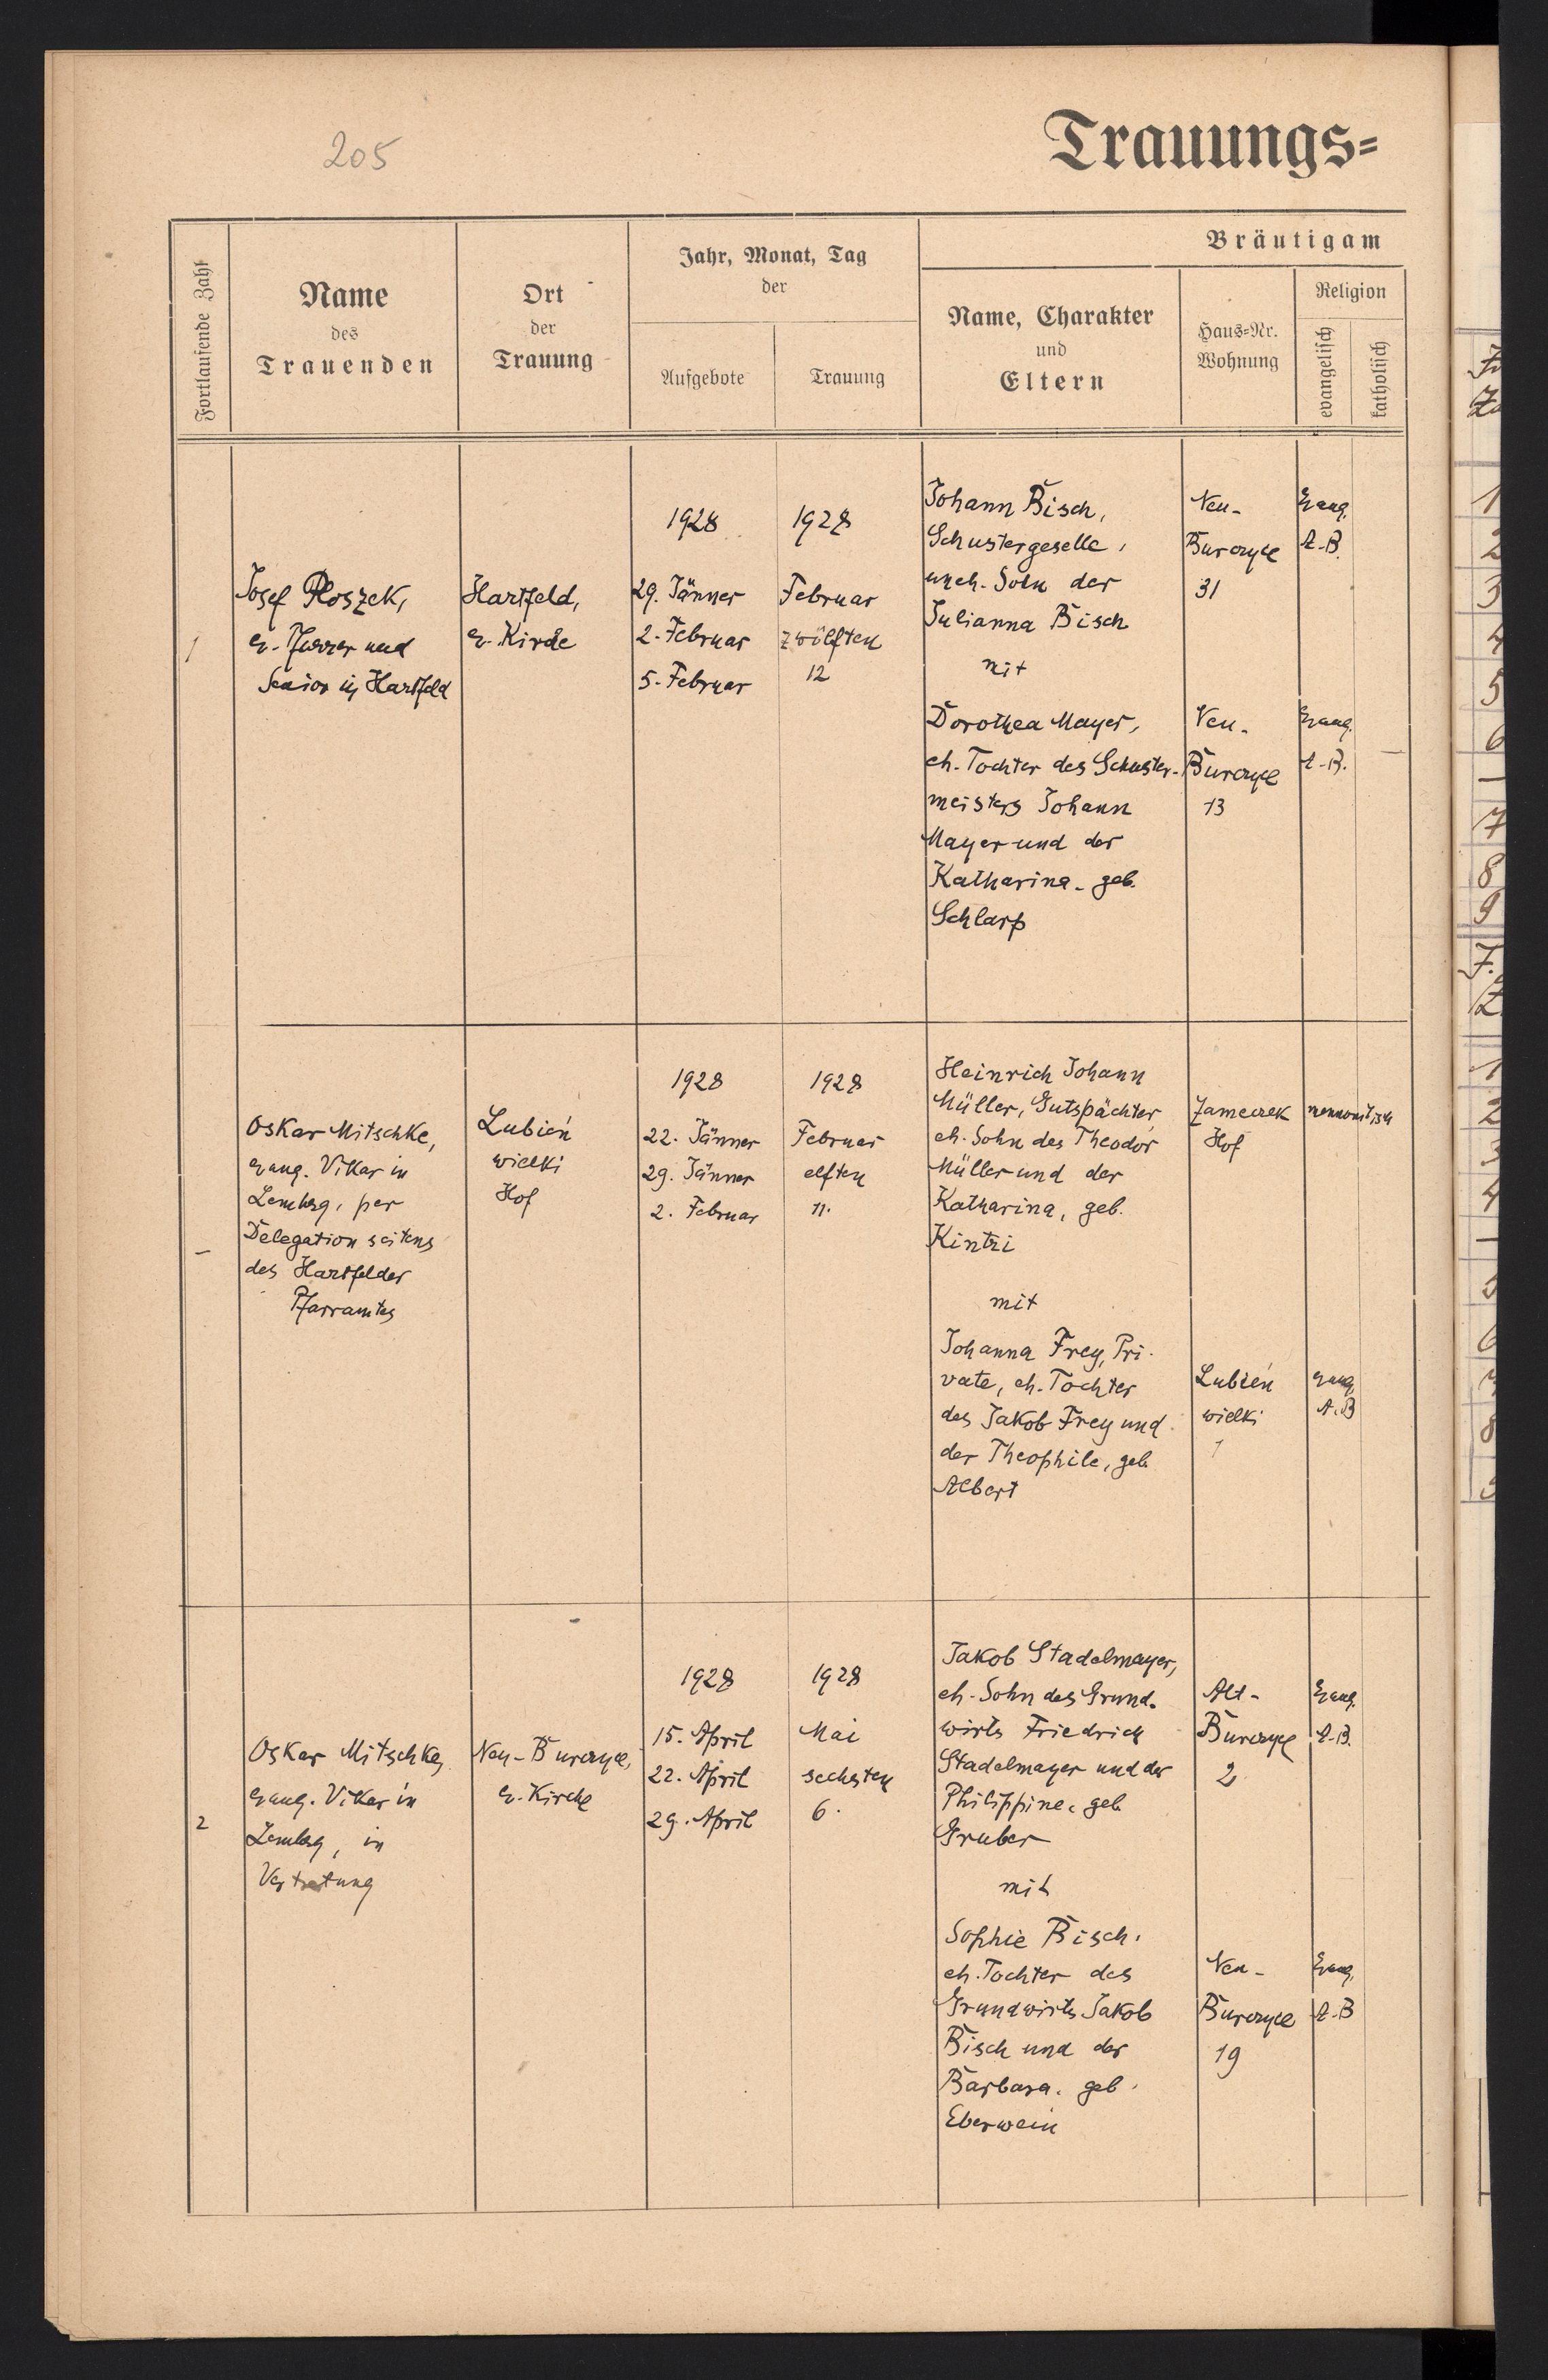 205
Trauungs=
Fortlaufende Zahl
Name
des
Trauenden
Ort
der
Trauung
Jahr, Monat, Tag
der
Aufgebote
Trauung
Bräutigam
Name, Charakter
und
Eltern
Haus=Nr.
Wohnung
Religion
evangelisch
katholisch
1
Josef Ploszek,
ev. Pfarrer und
Senior in Hartfeld
Hartfeld,
ev. Kirche
1928
29. Jänner
2. Februar
5. Februar
1928
Februar
zwölften
12
Johann Bisch,
Schustergeselle,
uneh. Sohn der
Julianna Bisch
mit
Dorothea Mayer,
eh. Tochter des Schuster-
meisters Johann
Mayer und der
Katharina, geb.
Schlarp
Neu-
Burczyce
31
Neu-
Burczyce
13
Evang.
A.B.
Evang.
A.B.
—
Oskar Mitschke,
evang. Vikar in
Lemberg, per
Delegation seitens
des Hartfelder
Pfarramtes
Lubień
wielki
Hof
1928
22. Jänner
29. Jänner
2. Februar
1928
Februar
elften
11.
Heinrich Johann
Müller, Gutspächter
eh. Sohn des Theodor
Müller und der
Katharina, geb.
Kintzi
mit
Johanna Frey, Pri-
vate, eh. Tochter
des Jakob Frey und
der Theophile, geb.
Albert
Zameczek
Hof
Lubień
wielki
1
mennonitisch
evang.
A.B
2
Oskar Mitschke,
evang. Vikar in
Lemberg, in
Vertretung
Neu-Burczyce,
ev. Kirche
1928
15. April
22. April
29. April
1928
Mai
sechsten
6.
Jakob Stadelmayer,
eh. Sohn des Grund-
wirts Friedrich
Stadelmayer und der
Philippine, geb.
Gruber
mit
Sophie Bisch,
eh. Tochter des
Grundwirts Jakob
Bisch und der
Barbara, geb.
Eberwein
Alt-
Burczyce
2
Neu-
Burczyce
19
Evang.
A.B.
Evang.
A.B